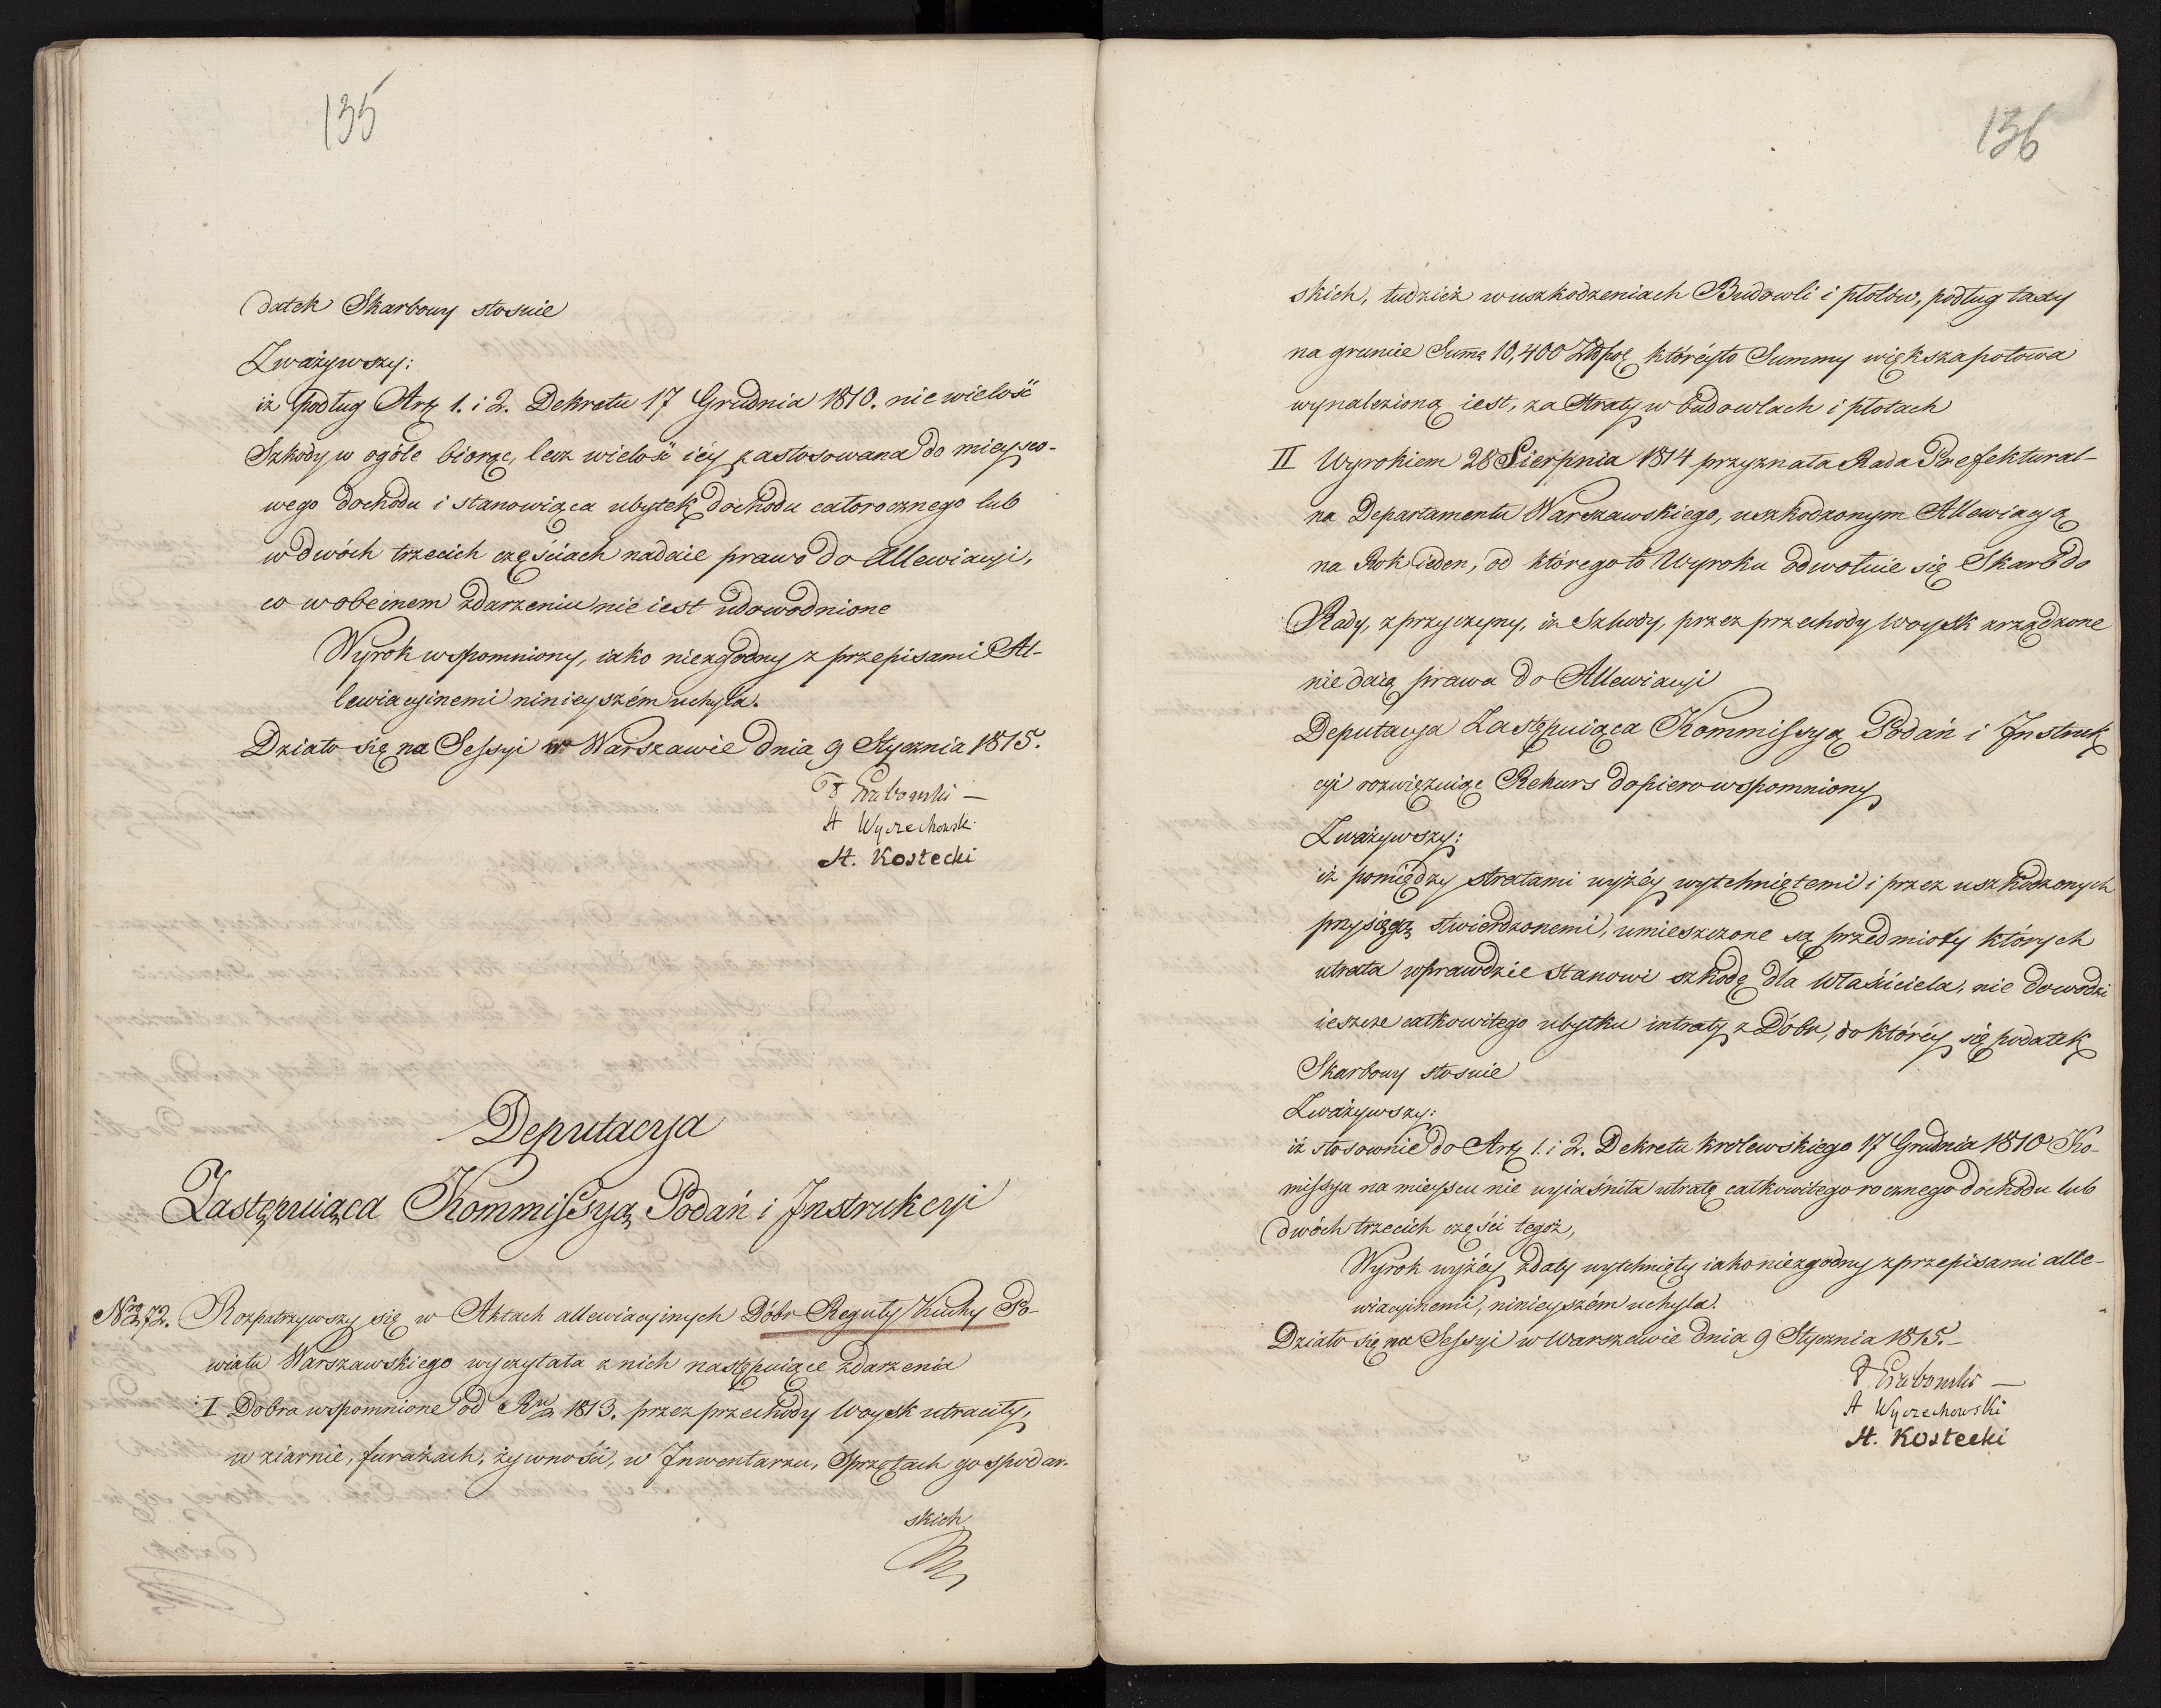 135
datek Skarbowy stosuie
Zważywszy:
iż podług Art. 1. i 2. Dekretu 17 Grudnia 1810. nie wielość
Szkody w ogóle biorąc, lecz wielość iéy zastosowana do mieysco-
wego dochodu i stanowiąca ubytek dochodu całorocznego lub
w dwóch trzecich częściach nadaie prawo do Allewiacyi,
co w obecnem zdarzeniu nie iest udowodnione
Wyrok wspomniony, iako niezgodny z przepisami Al-
lewiacyinemi ninieyszém uchyla.
Działo się na Sessyi w Warszawie dnia 9 Stycznia 1815.
Grabowski —
A Wyczechowski
A. Kostecki
Deputacya
Zastępuiąca Kommissyą Podań i Instrukcyi
Nro 272. Rozpatrzywszy się w Aktach allewiacyinych Dóbr Reguły Kuchy Po-
wiatu Warszawskiego wyczytała z nich następuiące zdarzenia
I Dobra wspomnione od Rku 1813. przez przechody Woysk utraciły,
w ziarnie, furażach, żywności, w Inwentarzu, Sprzętach gospodar-
skich
136
skich, tudzież w uszkodzeniach Budowli i płotów, podług taxy
na gruncie Summę 10,400 Złopol któréyto Summy większa połowa
wynalezioną iest, za Straty w budowlach i płotach
II Wyrokiem 28 Sierpnia 1814 przyznała Rada Prefektural-
na Departamentu Warszawskiego, uszkodzonym Allewiacyą
na Rok ieden, od którego to Wyroku odwołuie się Skarb do
Rady, z przyczyny, iż Szkody, przez przechody Woysk zrządzone
nie daią prawa do Allewiacyi
Deputacya Zastępuiąca Kommissyą Podań i Instruk
cyi rozwięzuiąc Rekurs dopiero wspomniony
Zważywszy:
iż pomiędzy stratami wyżéy wytchniętemi i przez uszkodzonych
przysięgą stwierdzonemi, umieszczone są przedmioty których
utrata wprawdzie stanowi szkodę dla Właściciela, nie dowodzi
ieszcze całkowitego ubytku intraty z Dóbr, do któréy się podatek
Skarbowy stosuie
Zważywszy:
iż stosownie do Art. 1. i 2. Dekretu królewskiego 17 Grudnia 1810 Ko-
missya na mieyscu nie wyiaśniła utratę całkowitego rocznego dochodu lub
dwóch trzecich części tegoż,
Wyrok wyżéy zdaty wytchnięty iako niezgodny z przepisami alle-
wiacyinemi, ninieyszém uchyla.
Działo się na Sessyi w Warszawie dnia 9 Stycznia 1815. —
Grabowski —
A Wyczechowski
A. Kostecki